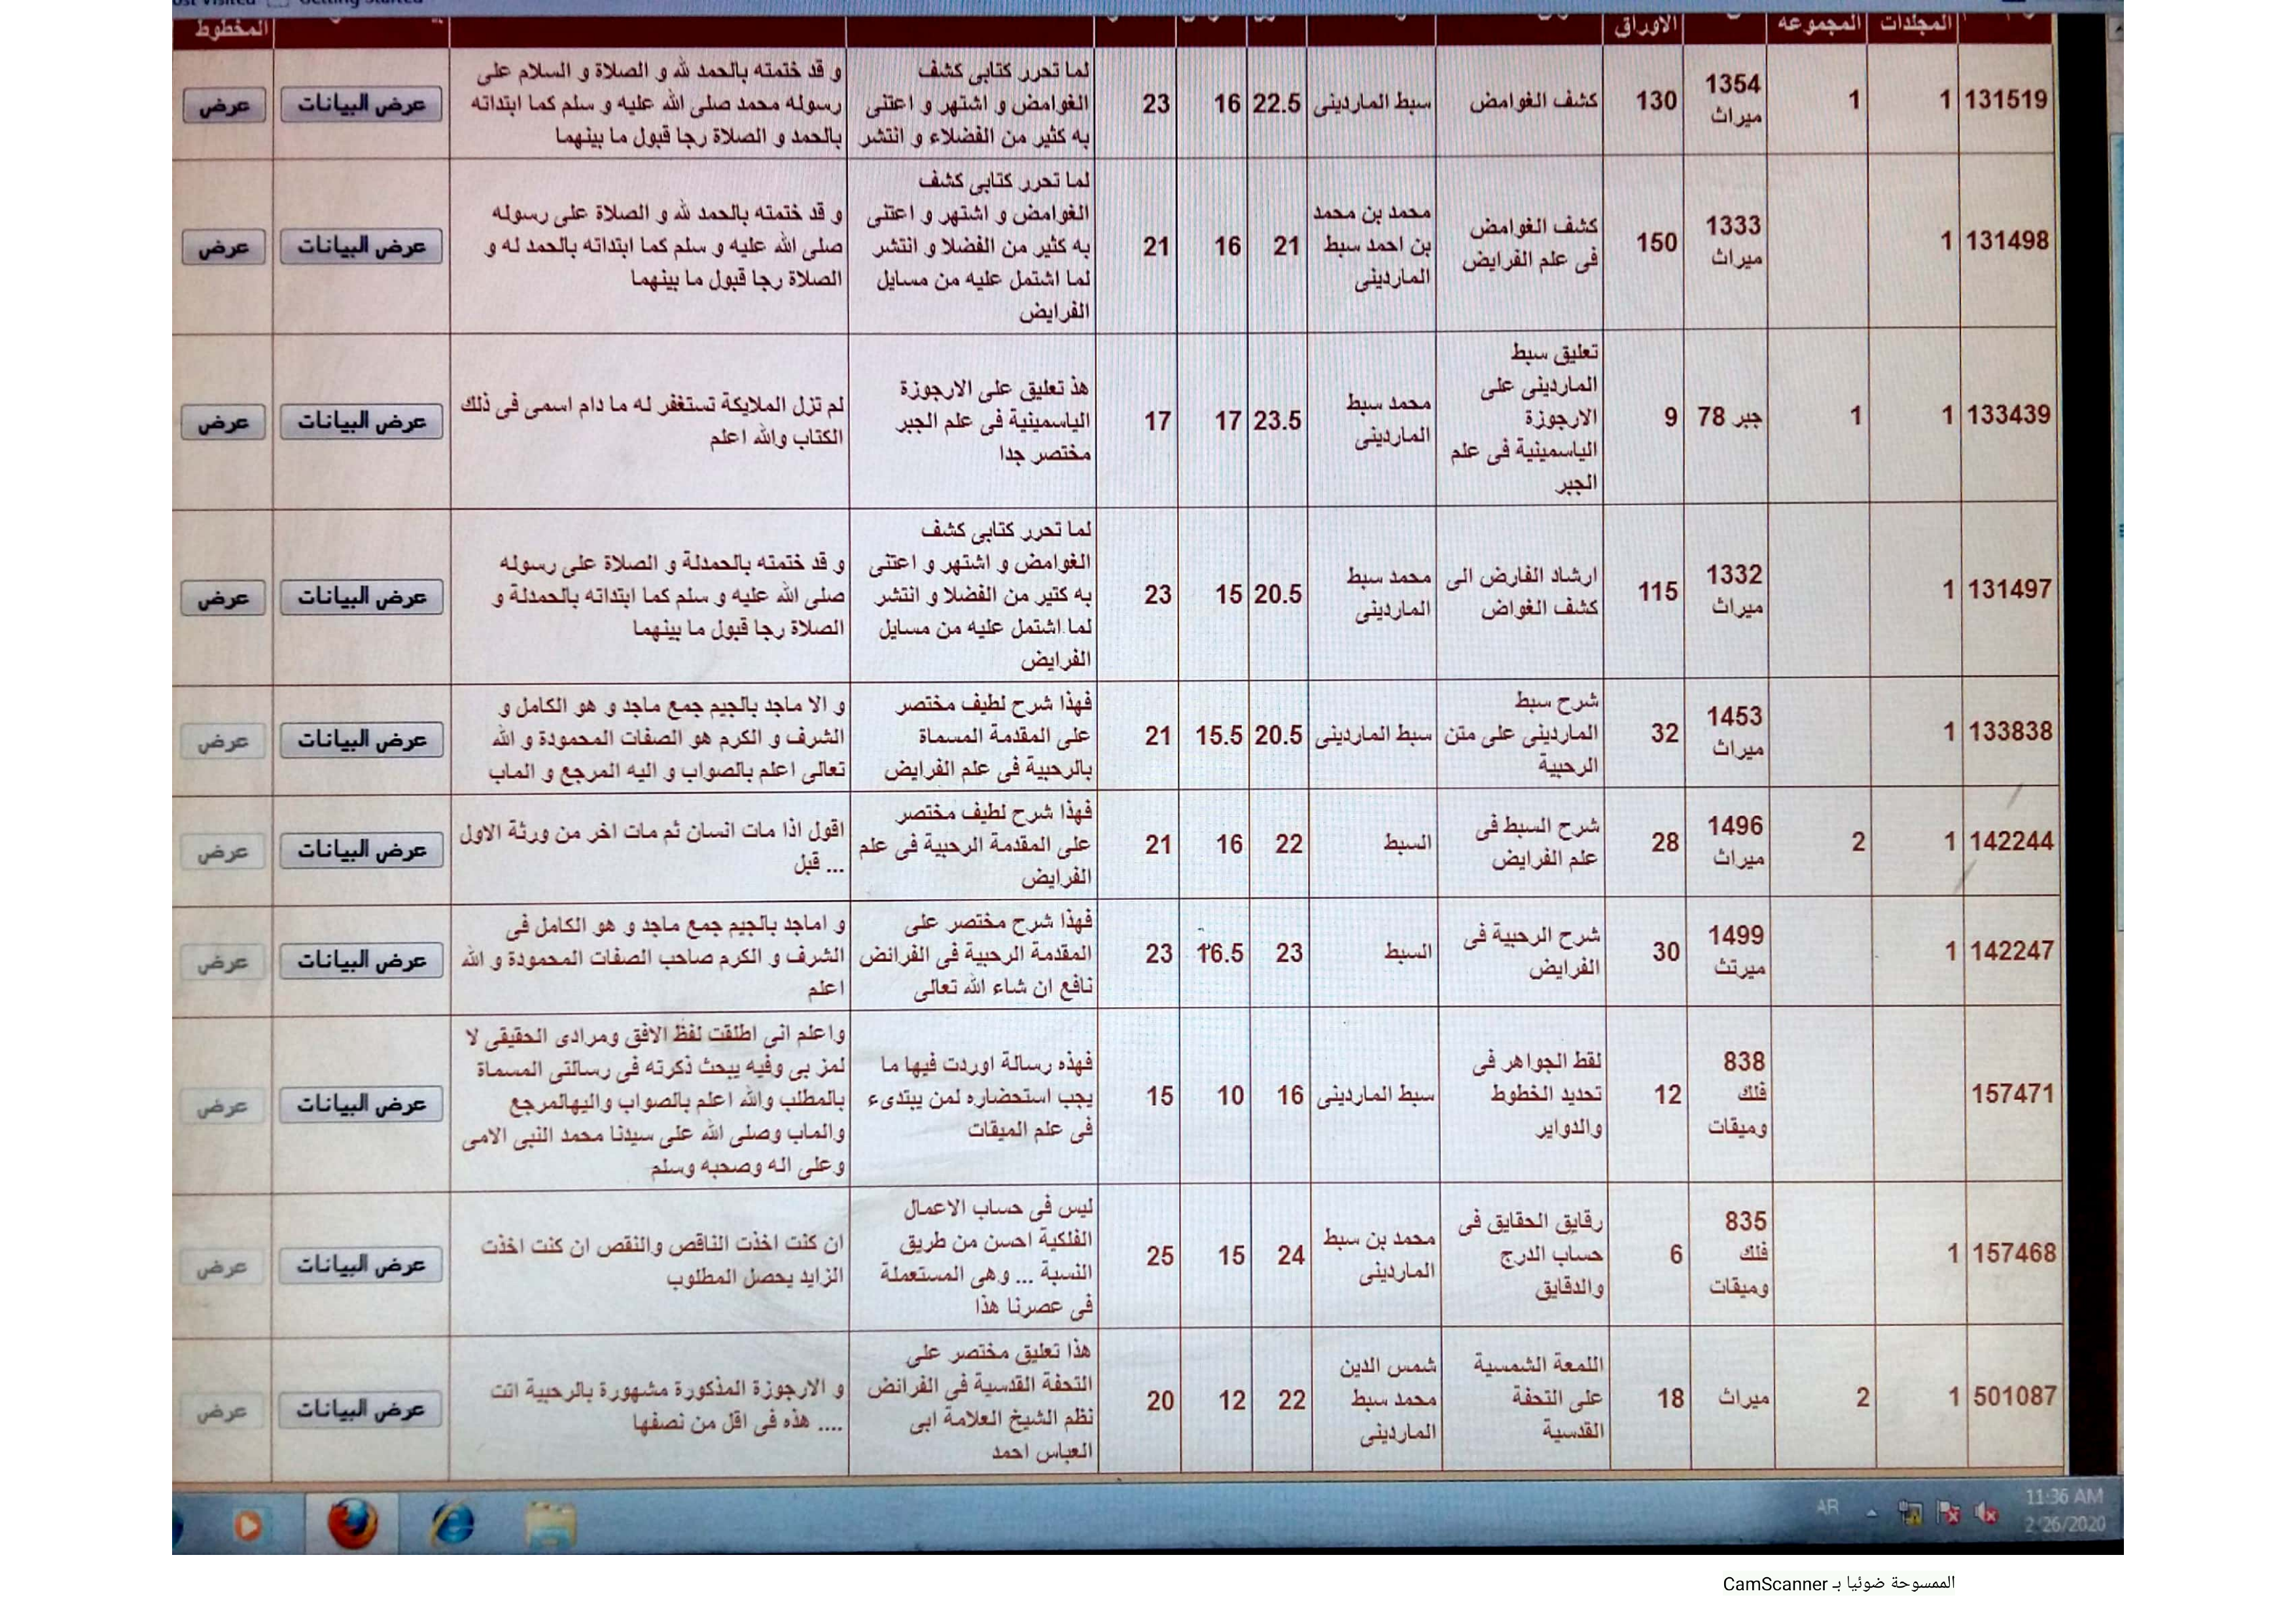 Getting Started
المجلدات المجموعة الاوراق المخطوط
131519 1 1 1354 ميراث 130 كشف الغوامض سبط الماردينى 22.5 16 23
لما تحرر كتابى كشف
الغوامض و اشتهر و اعتنى
به كثير من الفضلاء و انتشر
و قد ختمته بالحمد لله و الصلاة و السلام على
رسوله محمد صلى الله عليه و سلم كما ابتداته
بالحمد و الصلاة رجا قبول ما بينهما
عرض البيانات عرض
131498 1 1333 ميراث 150
كشف الغوامض
فى علم الفرايض
محمد بن محمد
بن احمد سبط
الماردينى
21 16 21
لما تحرر كتابى كشف
الغوامض و اشتهر و اعتنى
به كثير من الفضلا و انتشر
لما اشتمل عليه من مسايل
الفرايض
و قد ختمته بالحمد لله و الصلاة على رسوله
صلى الله عليه و سلم كما ابتداته بالحمد له و
الصلاة رجا قبول ما بينهما
عرض البيانات عرض
133439 1 1 جبر 78 9
تعليق سبط
الماردينى على
الارجوزة
الياسمينية فى علم
الجبر
محمد سبط
الماردينى
23.5 17 17
هذ تعليق على الارجوزة
الياسمينية فى علم الجبر
مختصر جدا
لم تزل الملايكة تستغفر له ما دام اسمى فى ذلك
الكتاب والله اعلم
عرض البيانات عرض
131497 1 1332 ميراث 115
ارشاد الفارض الى
كشف الغواض
محمد سبط
الماردينى
20.5 15 23
لما تحرر كتابى كشف
الغوامض و اشتهر و اعتنى
به كتير من الفضلا و انتشر
لما اشتمل عليه من مسايل
الفرايض
و قد ختمته بالحمدلة و الصلاة على رسوله
صلى الله عليه و سلم كما ابتداته بالحمدلة و
الصلاة رجا قبول ما بينهما
عرض البيانات عرض
133838 1 1453 ميراث 32
شرح سبط
الماردينى على متن
الرحبية
سبط الماردينى
20.5 15.5 21
فهذا شرح لطيف مختصر
على المقدمة المسماة
بالرحبية فى علم الفرايض
و الا ماجد بالجيم جمع ماجد و هو الكامل و
الشرف و الكرم هو الصفات المحمودة و الله
تعالى اعلم بالصواب و اليه المرجع و الماب
عرض البيانات عرض
142244 1 2 1496 ميراث 28
شرح السبط فى
علم الفرايض
السبط
22 16 21
فهذا شرح لطيف مختصر
على المقدمة الرحبية فى علم
الفرايض
اقول اذا مات انسان ثم مات اخر من ورثة الاول
قبل ...
عرض البيانات عرض
142247 1 1499 ميرتث 30
شرح الرحبية فى
الفرايض
السبط
23 16.5 23
فهذا شرح مختصر على
المقدمة الرحبية فى الفرائض
نافع ان شاء الله تعالى
و اماجد بالجيم جمع ماجد و هو الكامل فى
الشرف و الكرم صاحب الصفات المحمودة و الله
اعلم
عرض البيانات عرض
157471 838 فلك وميقات 12
لقط الجواهر فى
تحديد الخطوط
والدواير
سبط الماردينى
16 10 15
فهذه رسالة اوردت فيها ما
يجب استحضاره لمن يبتدىء
فى علم الميقات
واعلم انى اطلقت لفظ الافق ومرادى الحقيقى لا
لمز بى وفيه يبحث ذكرته فى رسالتى المسماة
بالمطلب والله اعلم بالصواب واليهالمرجع
والماب وصلى الله على سيدنا محمد النبى الامى
وعلى اله وصحبه وسلم
عرض البيانات عرض
157468 1 835 فلك وميقات 6
رقايق الحقايق فى
حساب الدرج
والدقايق
محمد بن سبط
الماردينى
24 15 25
ليس فى حساب الاعمال
الفلكية احسن من طريق
النسبة ... وهى المستعملة
فى عصرنا هذا
ان كنت اخذت الناقص والنقص ان كنت اخذت
الزايد يحصل المطلوب
عرض البيانات عرض
501087 1 2 ميراث 18
اللمعة الشمسية
على التحفة
القدسية
شمس الدين
محمد سبط
الماردينى
22 12 20
هذا تعليق مختصر على
التحفة القدسية فى الفرائض
نظم الشيخ العلامة ابى
العباس احمد
و الارجوزة المذكورة مشهورة بالرحبية اتت
هذه فى اقل من نصفها ....
عرض البيانات عرض
AR 11:36 AM
2/26/2020
الممسوحة ضوئيا بـ CamScanner